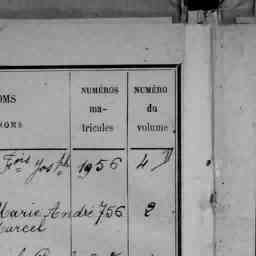 OMS
NOMS
NUMÉROS
ma-
tricules
NUMÉRO
du
volume
Fçois Josph 1956 4
Marie André 756 2
Marcel